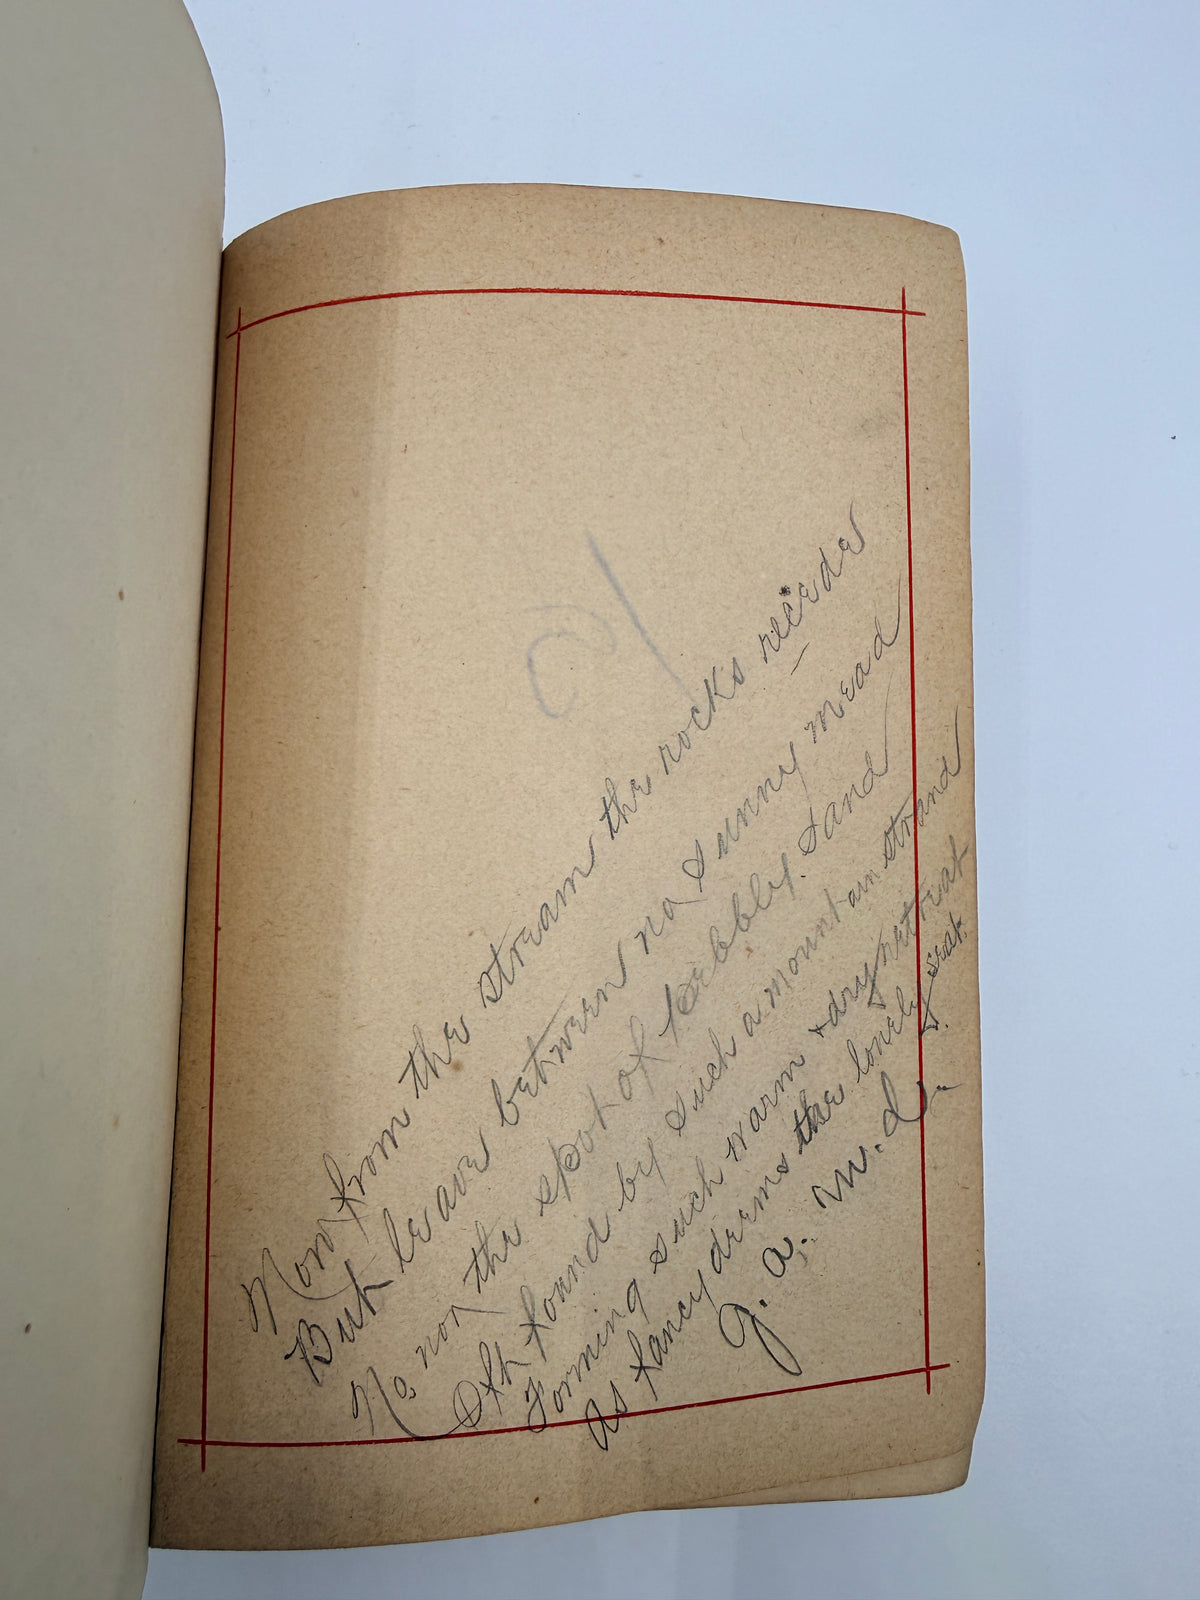 Now from the stream the rocks recede
But leave between no sunny mead
No, nor the spot of pebbly sand
Oft found by such a mountain strand
Forming such warm & dry retreat
As fancy deems the lonely seat.
G. A. M. D.